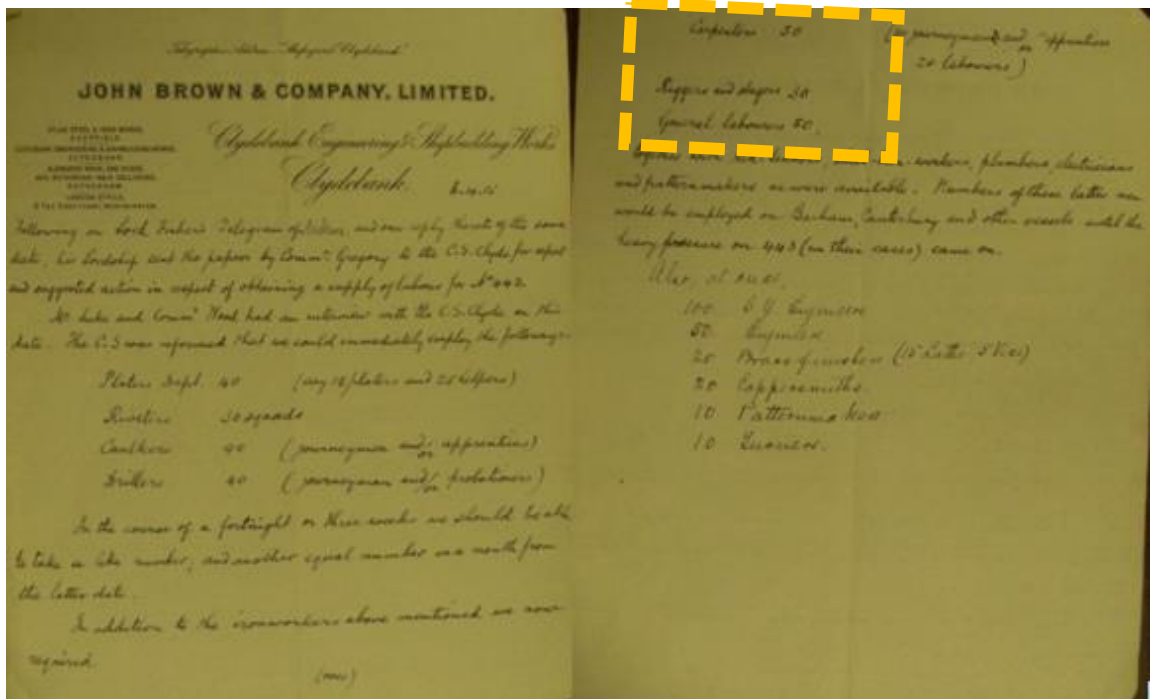 Telegraphic Address "Shipyard Clydebank"
JOHN BROWN & COMPANY, LIMITED.
ATLAS STEEL & IRON WORKS,
SHEFFIELD.
Clydebank Engineering & Shipbuilding Works
Clydebank.
Following on Lord Fisher's Telegram of and our reply thereto of the same
date, his Lordship sent the papers by Comm. Gregory to the C.S. Clyde for report
and suggested action in respect of obtaining a supply of labour for No 443.
Mr Luke and Comm. Wood had an interview with the C.S. Clyde on this
date. The C.S. was informed that we could immediately employ the following:-
Platers Dept. 40 (say 15 platers and 25 helpers)
Riveters 30 squads
Caulkers 40 (journeymen and/or apprentices)
Drillers 40 (journeymen and/or probationers)
In the course of a fortnight or three weeks we should be able
to take a like number, and another equal number in a month from
the latter date.
In addition to the ironworkers above mentioned we now
required
(over)
Carpenters 50 (journeymen and/or apprentices
20 labourers)
Riggers and 30
General labourers 50.
workers, plumbers, electricians
and patternmakers as were available. Numbers of these latter men
would be employed on Barham, Canterbury and other vessels until the
heavy pressure on 443 (in their cases) came on.
Also, at once,
100 Engineers
50
20 Brass finishers (15 Lathe 5 Vice)
20 Coppersmiths.
10 Patternmakers
10